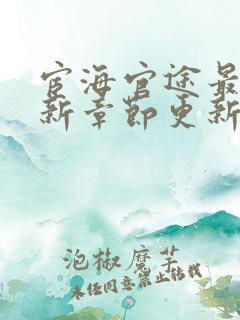 宦海官途最
新章节更新
泡椒魔芋
未经同意禁止转载